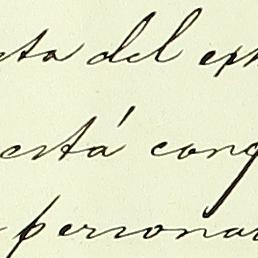 sta del exp
está cong
personas